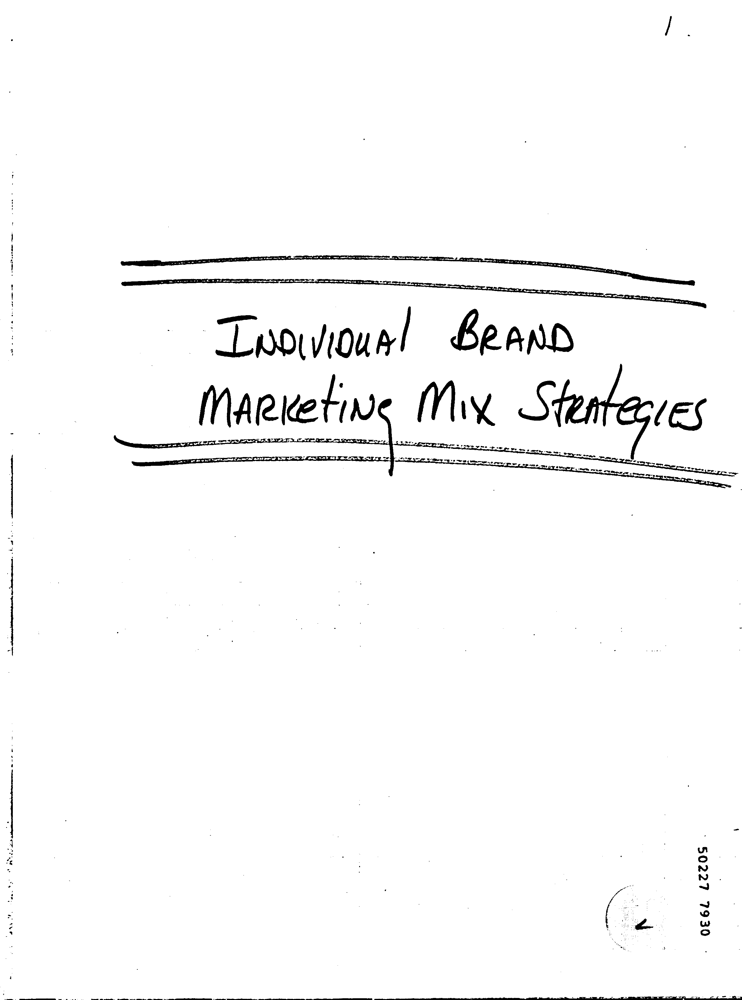 1
INDIVIDUAl BRAND
MARKetiNg Mix StRAtegiES
50227 7930